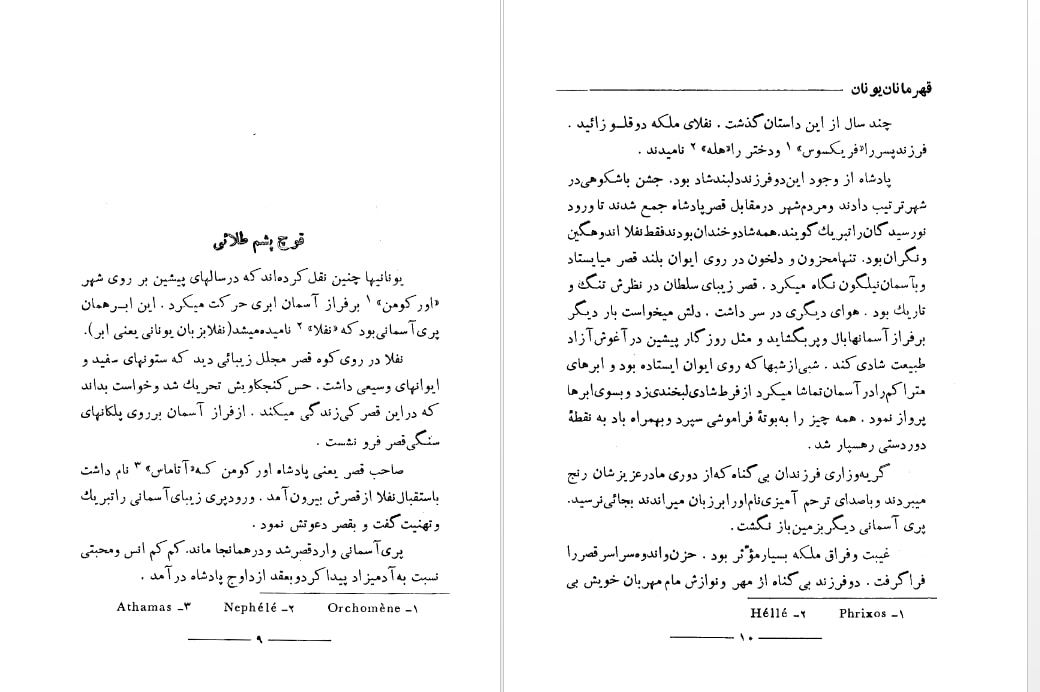 قوچ پشم طلائی
یونانیها چنین نقل کرده‌اند که درسالهای پیشین بر روی شهر
«اورکومن» ۱ برفراز آسمان ابری حرکت میکرد . این ابرهمان
پری آسمانی بود که «نفلا» ۲ نامیده میشد(نفلا بزبان یونانی یعنی ابر).
نفلا در روی کوه قصر مجلل زیبائی دید که ستونهای سفید و
ایوانهای وسیعی داشت . حس کنجکاویش تحریك شد وخواست بداند
که دراین قصر کی زندگی میکند . ازفراز آسمان برروی پلکانهای
سنگی قصر فرو نشست .
صاحب قصر یعنی پادشاه اورکومن که«آتاماس» ۳ نام داشت
باستقبال نفلا ازقصرش بیرون آمد . ورودپری زیبای آسمانی راتبریك
وتهنیت گفت و بقصر دعوتش نمود .
پری آسمانی واردقصرشد ودرهمانجا ماند. کم کم انس ومحبتی
نسبت به آدمیزاد پیدا کردو بعقد ازدواج پادشاه درآمد .
۱ـ Orchomène ۲ـ Nephélé ۳ـ Athamas
۹
قهرمانان یونان
چند سال از این داستان گذشت . نفلای ملکه دوقلو زائید .
فرزندپسررا«فریکسوس» ۱ ودختر را«هله» ۲ نامیدند .
پادشاه از وجود این دوفرزند دلبندشاد بود. جشن باشکوهی در
شهرترتیب دادند ومردم شهر درمقابل قصرپادشاه جمع شدند تا ورود
نورسیدگان راتبریك گویند.همه شادوخندان بودند فقط نفلا اندوهگین
ونگران بود. تنها محزون و دلخون در روی ایوان بلند قصر میایستاد
وبآسمان نیلگون نگاه میکرد . قصر زیبای سلطان در نظرش تنگ و
تاریك بود . هوای دیگری در سر داشت . دلش میخواست بار دیگر
برفراز آسمانها بال وپر بگشاید و مثل روزگار پیشین در آغوش آزاد
طبیعت شادی کند . شبی از شبها که روی ایوان ایستاده بود و ابرهای
متراکم رادر آسمان تماشا میکرد از فرط شادی لبخندی زد و بسوی ابرها
پرواز نمود . همه چیز را به بوتهٔ فراموشی سپرد وبهمراه باد به نقطهٔ
دوردستی رهسپار شد .
گریه وزاری فرزندان بی گناه که از دوری مادرعزیزشان رنج
میبردند وباصدای ترحم آمیزی نام اورا بر زبان میراندند بجائی نرسید.
پری آسمانی دیگر بزمین باز نگشت.
غیبت وفراق ملکه بسیار مؤثر بود . حزن واندوه سراسر قصر را
فراگرفت . دوفرزند بی گناه از مهر ونوازش مام مهربان خویش بی
۱ـ Phrixos ۲ـ Héllé
۱۰